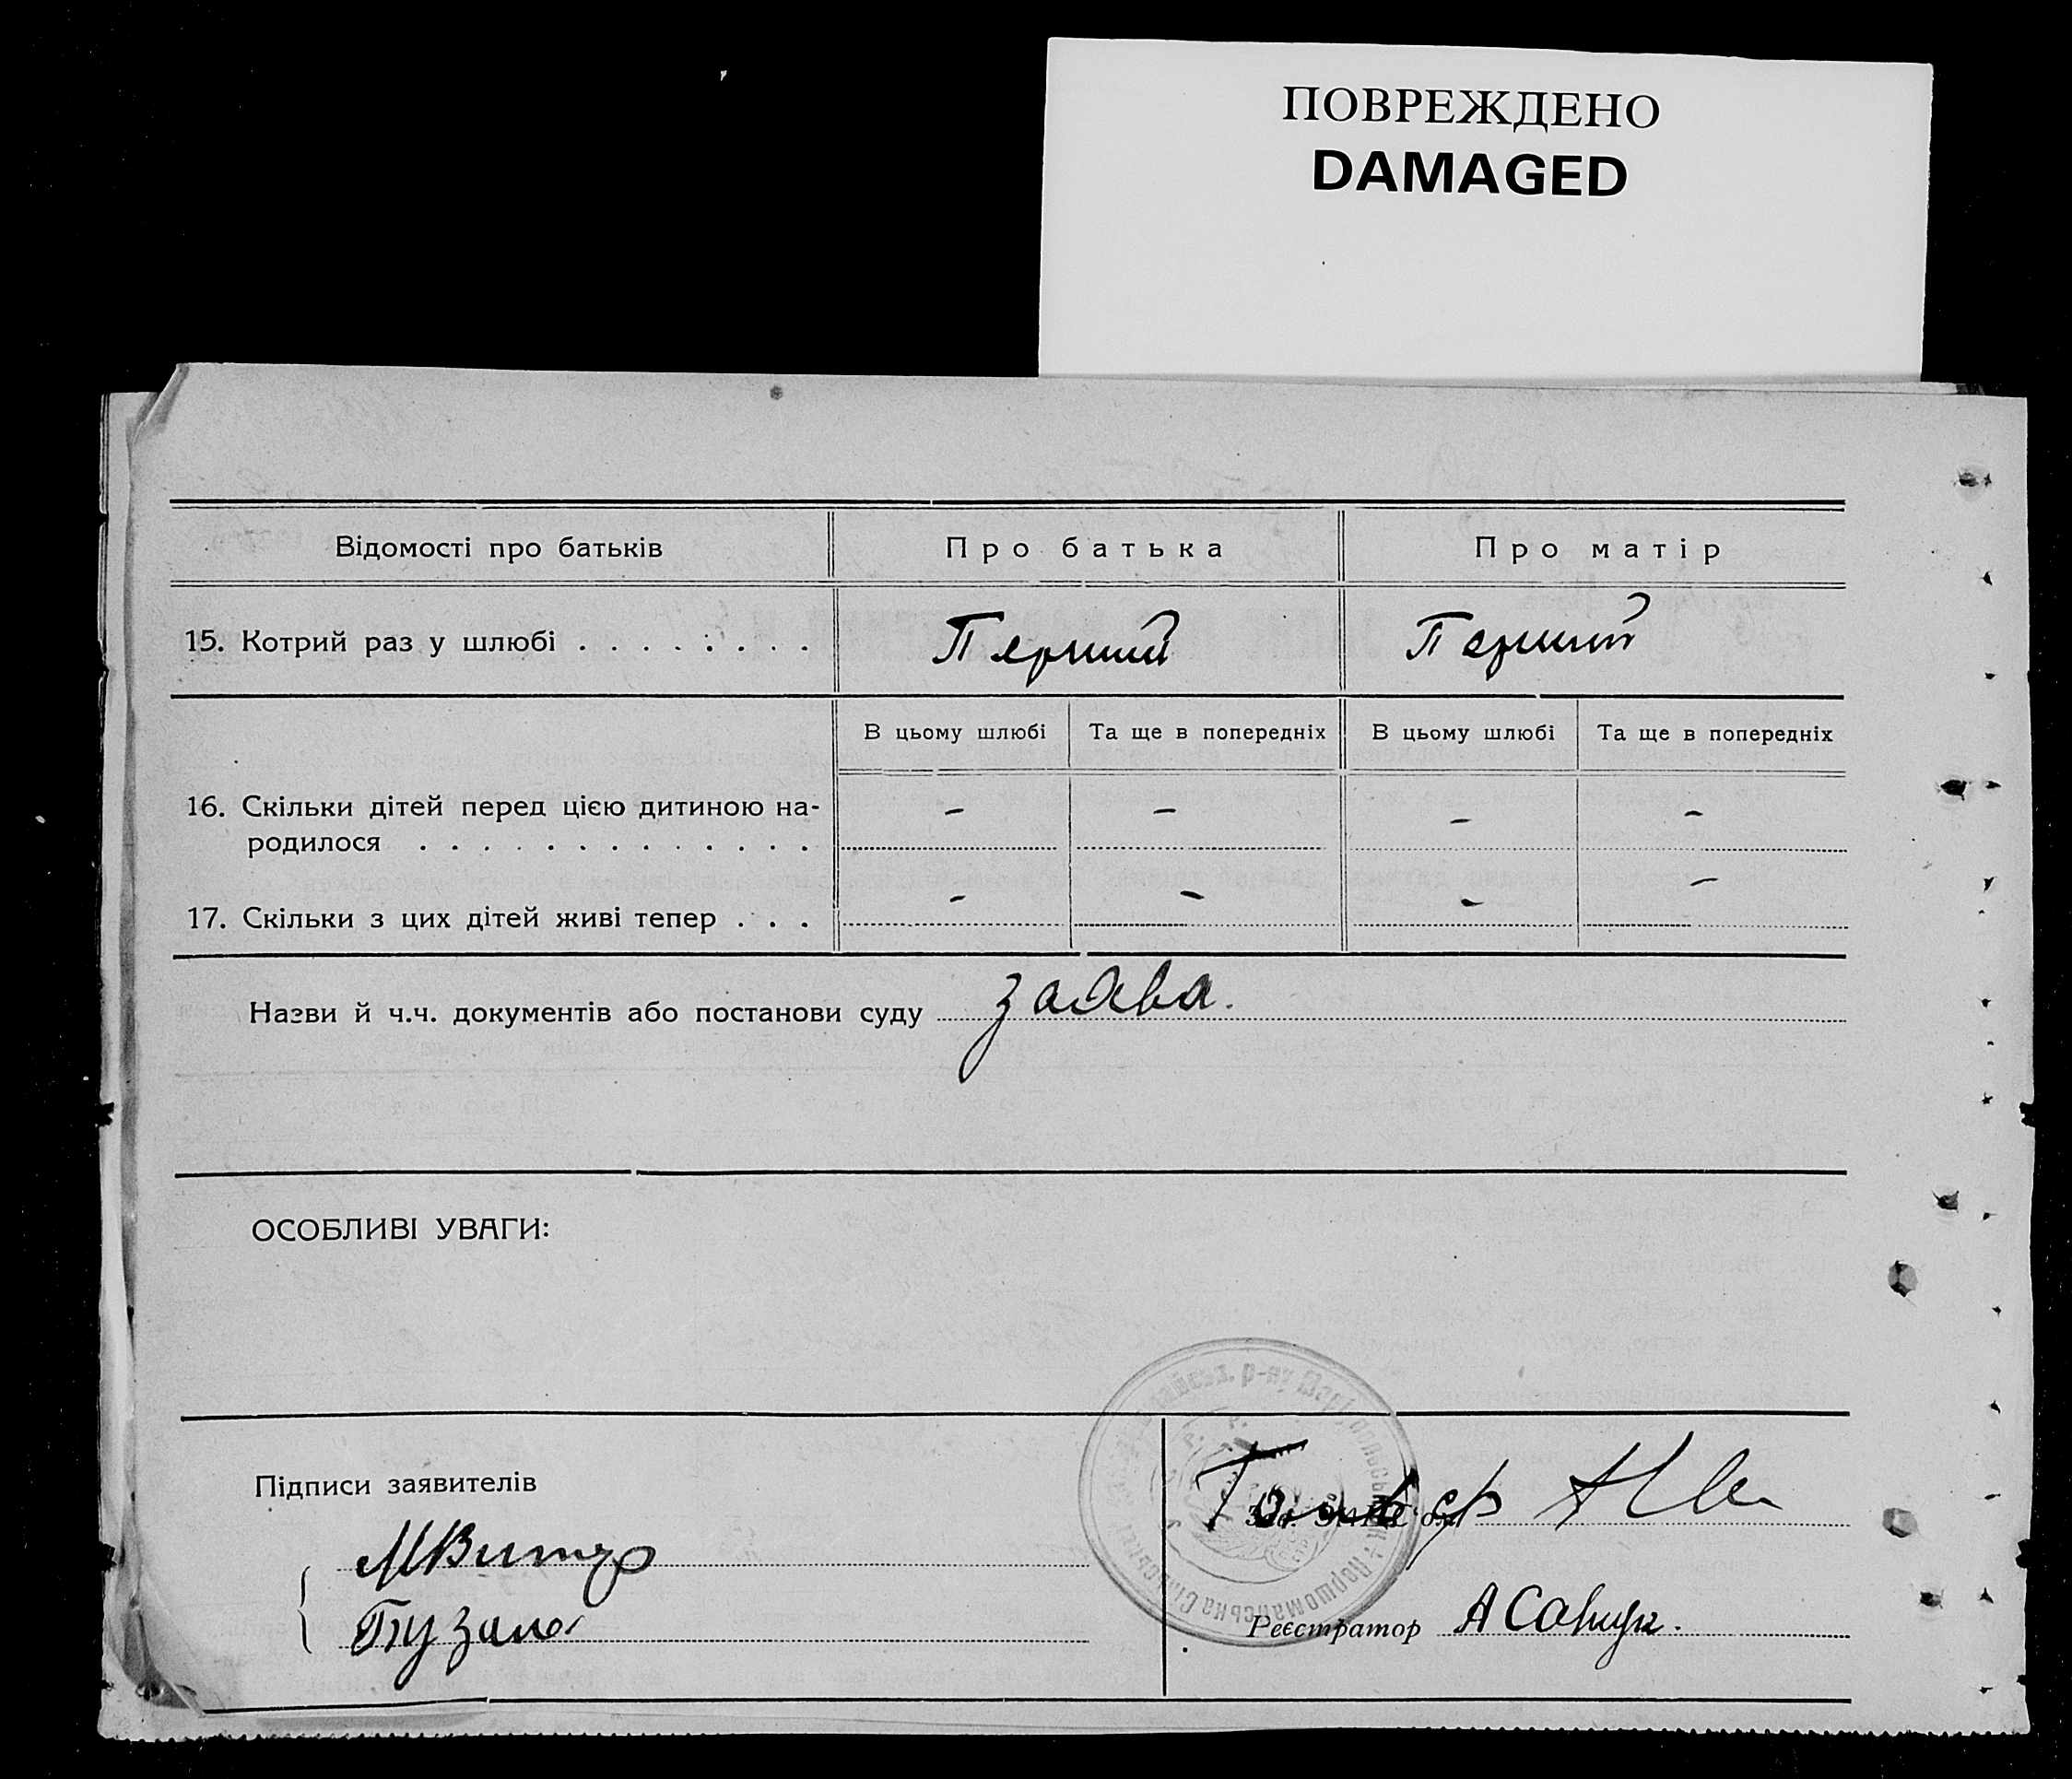 ПОВРЕЖДЕНО
DAMAGED
Відомості про батьків Про батька Про матір
15. Котрий раз у шлюбі . . . . . . . . . Перший Перший
В цьому шлюбі Та ще в попередніх В цьому шлюбі Та ще в попередніх
16. Скільки дітей перед цією дитиною на- – – – –
родилося . . . . . . . . . . . . . .
17. Скільки з цих дітей живі тепер . . . – – – –
Назви й ч.ч. документів або постанови суду заява.
ОСОБЛИВІ УВАГИ:
Підписи заявителів
Реєстратор